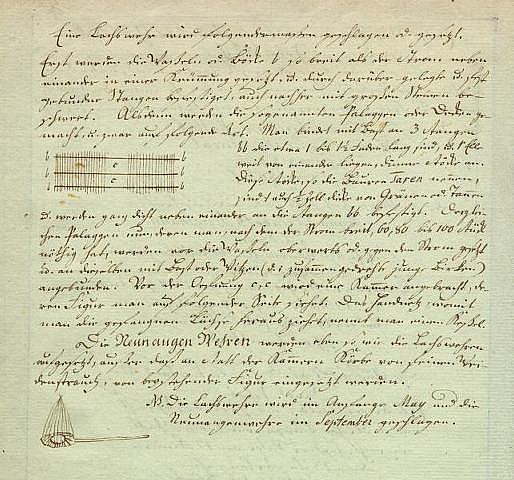 Eine Lachswehre wird folgendermassen geschlagen od. gesetzt.
Erst werden die Wasseln od. Böcke b so breit als der Strom neben
einander in einer Krümmung gesetzt, u. durch darüber gelegte u. fest
gebundene Stangen befestiget, auch nachher mit grossen Steinen be-
schwert. Alsdenn werden die sogenannten Palaggen oder Decken ge-
macht, u. zwar auf folgende Art. Man bindet mit Bast an 3 Stangen
bb die etwa 1 bis 1½ Faden lang sind, u. 1 Ell
weit von einander liegen, dünne Stöcke an.
Diese Stöcke, so die Bauren Taren nennen,
sind auch Zoll dicke von Gränen od. Tannen
b c b
b c b
b b
u. werden ganz dicht neben einander an die Stangen bb befestigt. Derglei-
chen Palaggen nun, deren man, nach dem der Strom breit, 60, 80 bis 100 Stück
nöthig hat, werden vor die Wasseln oberwerts od. gegen den Strom gesetzt
u. an dieselben mit Bast oder Witzen (d. i. zusammengedrehte junge Birken)
angebunden. Vor der Oefnung c, c wird eine Kammer angebracht, de-
ren Figur man auf folgender Seite siehet. Das Handnetz, womit
man die gefangenen Lächse heraus ziehet, nennt man einen Kessel.
Die Neunaugen Wehren werden eben so wie die Lachswehren
aufgesetzt, ausser dass an statt der Kammern Körbe von feinem Wei-
denstrauch, von beystehender Figur eingesetzt werden.
NB. Die Lachswehre wird im Anfange May und die
Neunaugenwehre im September geschlagen.